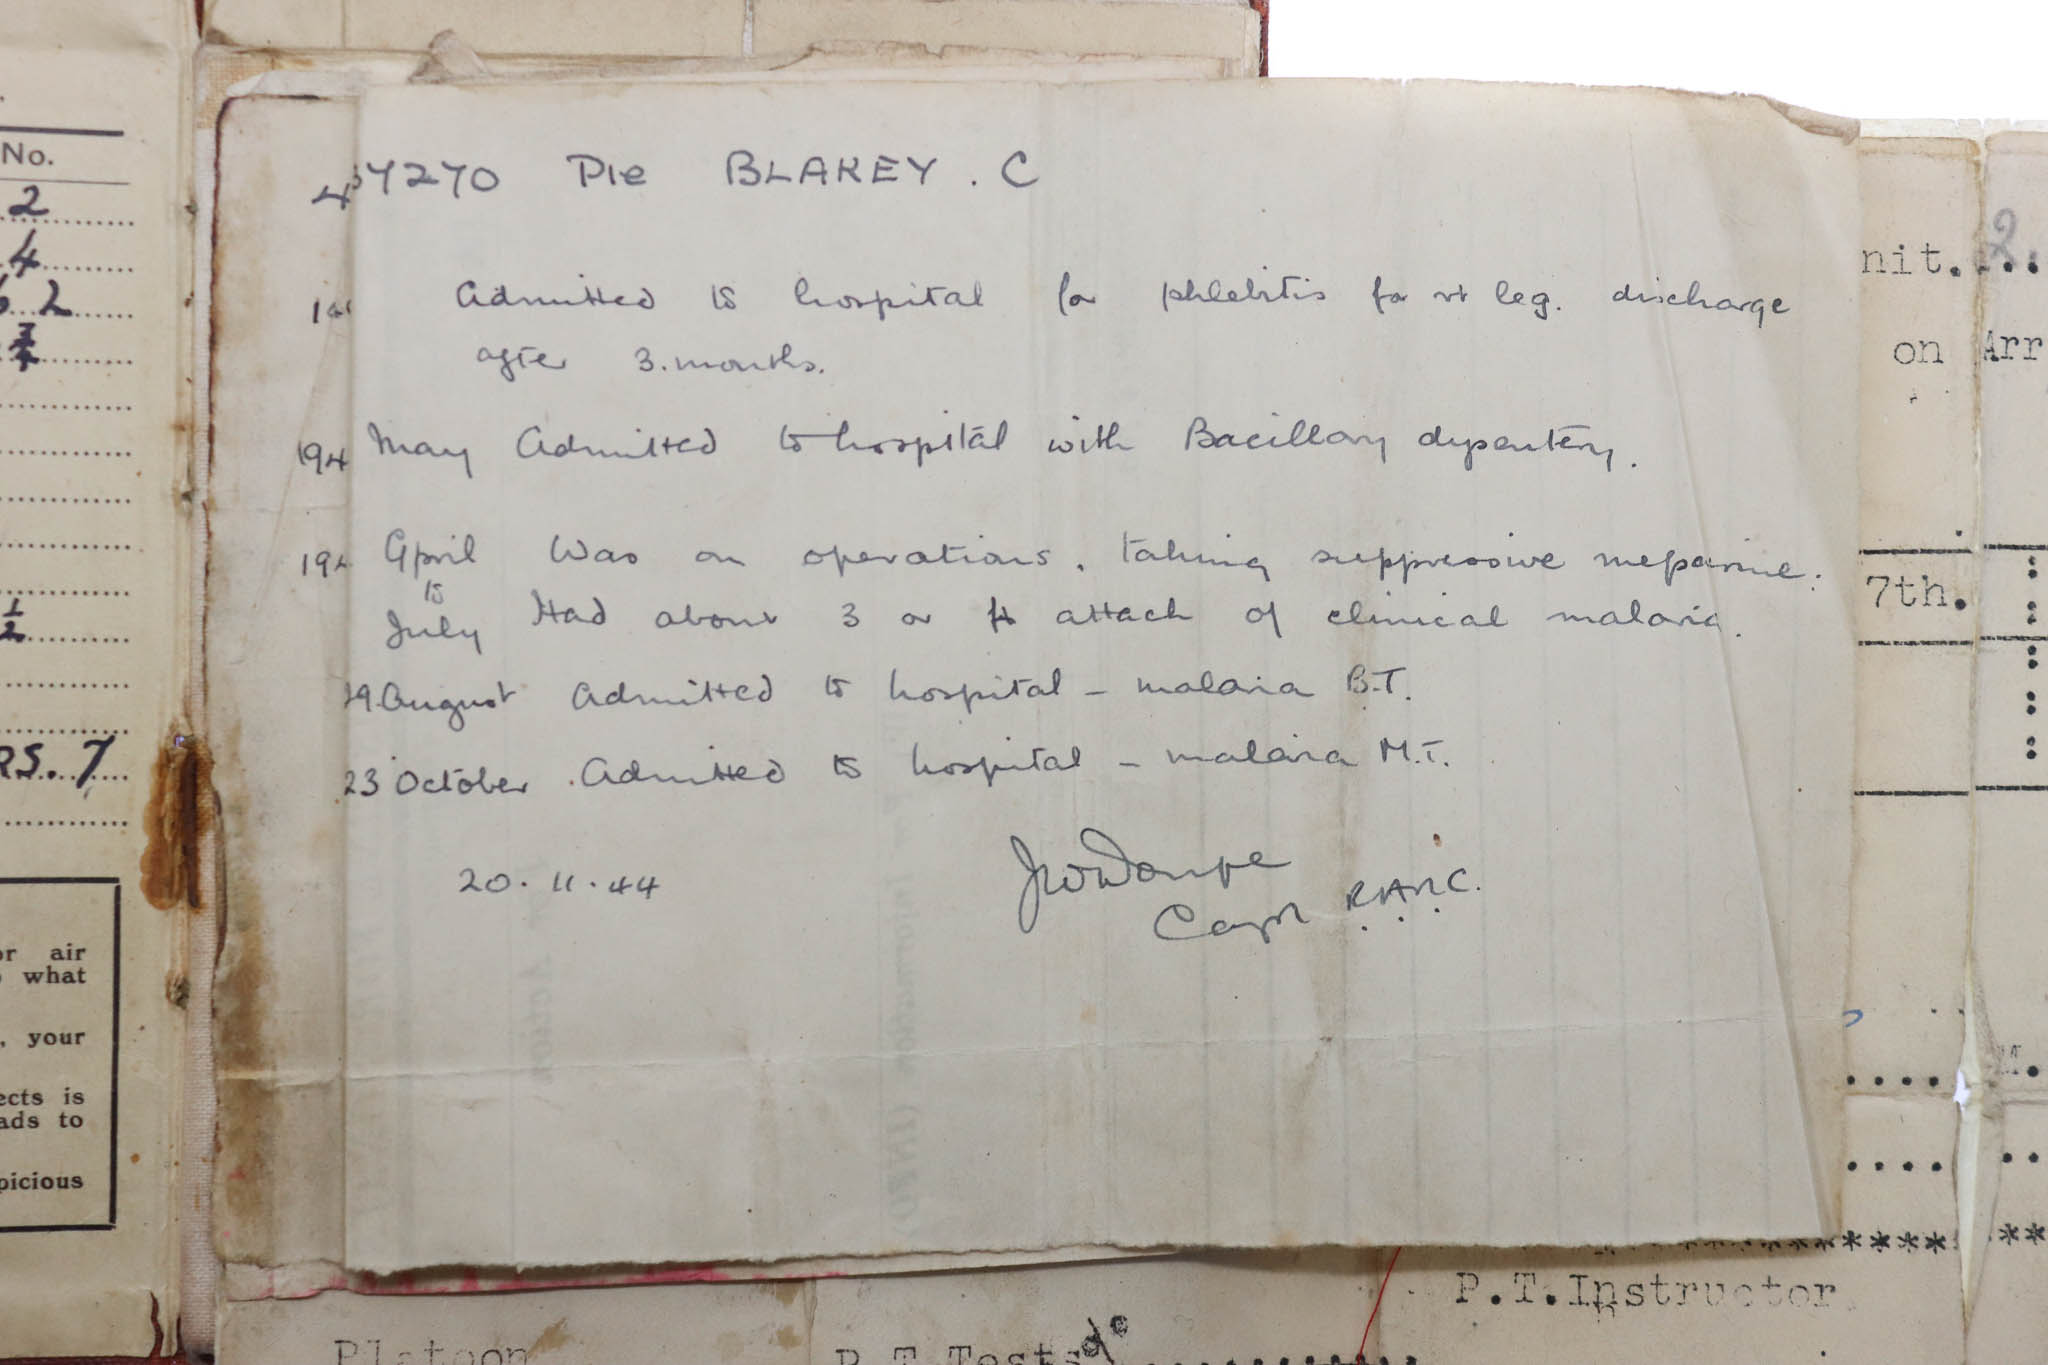 No.
2
4
2
1/2
RS. 7
or air
what
, your
ects is
ads to
picious
437270 Pte BLAKEY . C
Admitted to hospital for phlebitis for rt leg. discharge
after 3. months.
194 May Admitted to hospital with Bacillary dysentery.
194 April Was on operations. taking suppressive meparine.
to
July Had about 3 or 4 attack of clinical malaria.
29. August Admitted to hospital – malaria B.T.
23 October . Admitted to hospital – malaria M.T.
20. 11. 44
Capt R.A.M.C.
nit. 2.
on Arr
7th.
M.
********
P.T.Instructor
Platoon
P.T.Tests